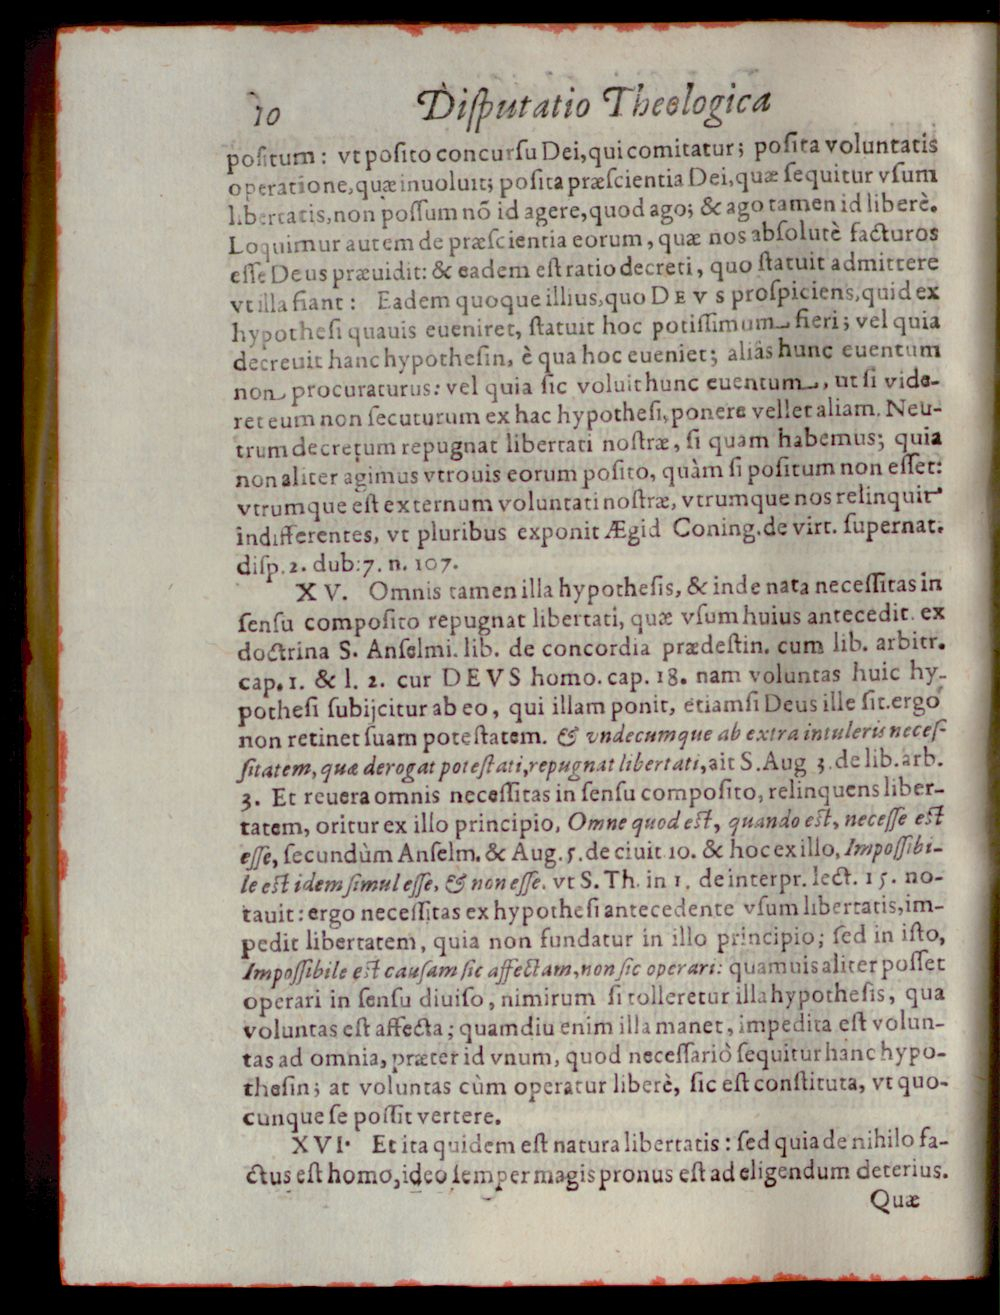 10 Diſputatio Theologica
poſitum: vt poſito concurſu Dei, qui comitatur; poſita voluntatis
operatione, quæ inuoluit; poſita præſcientia Dei, quæ ſequitur vſum
libertatis, non poſſum nō id agere, quod ago; & ago tamen id liberè.
Loquimur autem de præſcientia eorum, quæ nos abſolutè facturos
eſſe Deus præuidit: & eadem eſt ratio decreti, quo ſtatuit admittere
vt illa fiant: Eadem quoque illius, quo DEVS proſpiciens, quid ex
hypotheſi quauis eueniret, ſtatuit hoc potiſſimum fieri; vel quia
decreuit hanc hypotheſin, è qua hoc eueniet; aliàs hunc euentum
non procuraturus: vel quia ſic voluit hunc euentum, ut ſi vide-
ret eum non ſecuturum ex hac hypotheſi, ponere vellet aliam. Neu-
trum decretum repugnat libertati noſtræ, ſi quam habemus; quia
non aliter agimus vtrouis eorum poſito, quàm ſi poſitum non eſſet:
vtrumque eſt externum voluntati noſtræ, vtrumque nos relinquit
indifferentes, vt pluribus exponit Ægid Coning. de virt. ſupernat.
diſp. 2. dub: 7. n. 107.
XV. Omnis tamen illa hypotheſis, & inde nata neceſſitas in
ſenſu compoſito repugnat libertati, quæ vſum huius antecedit. ex
doctrina S. Anſelmi. lib. de concordia prædeſtin. cum lib. arbitr.
cap. 1. & l. 2. cur DEVS homo. cap. 18. nam voluntas huic hy-
potheſi ſubijcitur ab eo, qui illam ponit, etiamſi Deus ille ſit. ergo
non retinet ſuam poteſtatem. & vndecumque ab extra intuleris neceſ-
ſitatem, quæ derogat poteſtati, repugnat libertati, ait S. Aug 3. de lib. arb.
3. Et reuera omnis neceſſitas in ſenſu compoſito, relinquens liber-
tatem, oritur ex illo principio, Omne quod eſt, quando eſt, neceſſe eſt
eſſe, ſecundùm Anſelm. & Aug. 5. de ciuit 10. & hoc ex illo, Impoſſibi-
le eſt idem ſimul eſſe, & non eſſe. vt S. Th. in 1. de interpr. lect. 15. no-
tauit: ergo neceſſitas ex hypotheſi antecedente vſum libertatis, im-
pedit libertatem, quia non fundatur in illo principio; ſed in iſto,
Impoſſibile eſt cauſam ſic affectam, non ſic operari: quamuis aliter poſſet
operari in ſenſu diuiſo, nimirum ſi tolleretur illa hypotheſis, qua
voluntas eſt affecta; quamdiu enim illa manet, impedita eſt volun-
tas ad omnia, præter id vnum, quod neceſſariò ſequitur hanc hypo-
theſin; at voluntas cùm operatur liberè, ſic eſt conſtituta, vt quo-
cunque ſe poſſit vertere.
XVI. Et ita quidem eſt natura libertatis: ſed quia de nihilo fa-
ctus eſt homo, ideo ſemper magis pronus eſt ad eligendum deterius.
Quæ